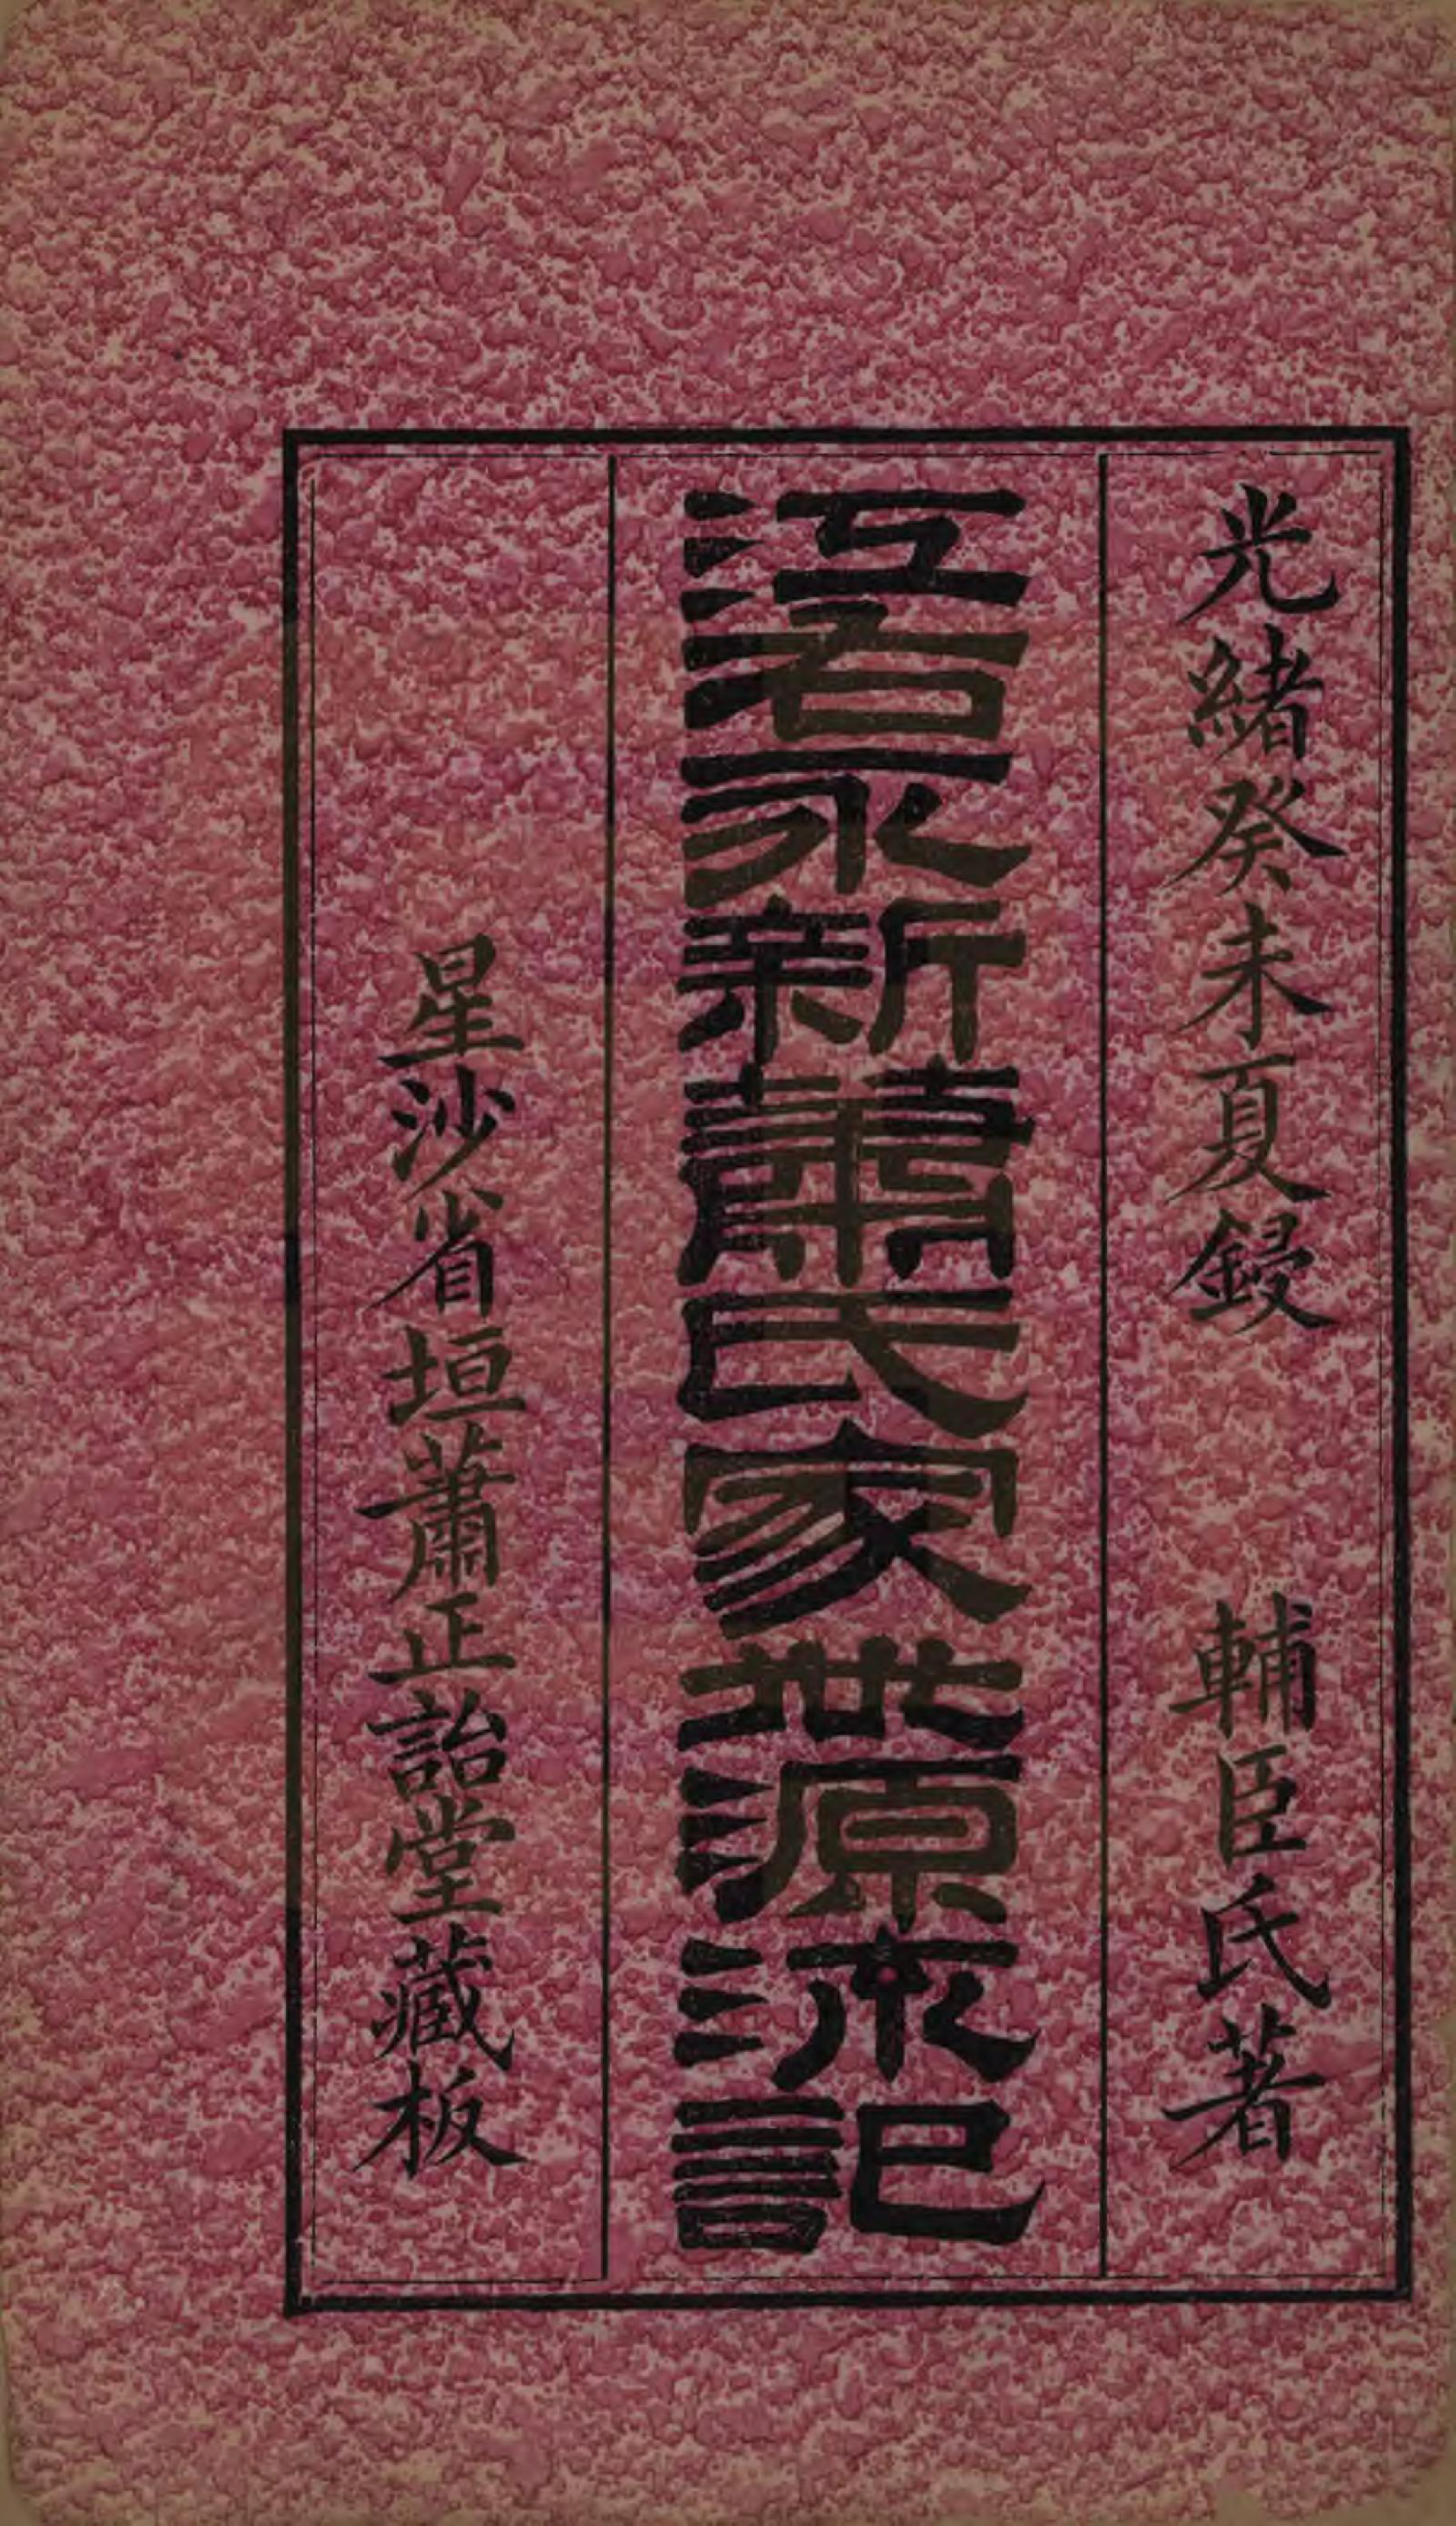 光緒癸未夏鋟 輔臣氏著
江右永新蕭氏家世源流記
星沙省垣蕭正詒堂藏板